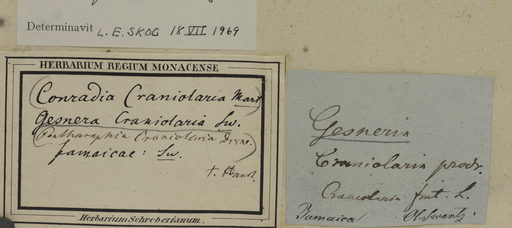 Determinavit L. E. SKOG 18 VII 1969
HERBARIUM REGIUM MONACENSE
(Conradia Craniolaria Mart)
Gesnera Craniolaria Sw.
(Pentharaphia Craniolaria Decne.)
Jamaicae: Sw.
Herbarium Schreberianum.
Gesneria
Craniolaria prodr.
Craniolaria frut. L.
Jamaica Ol. Swartz.